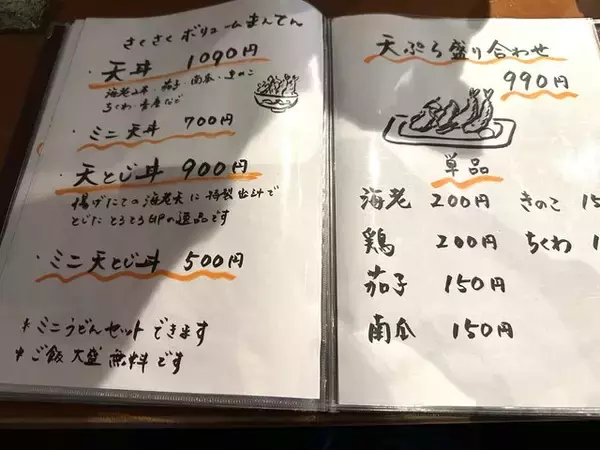 さくさく ボリュームまんてん
・天丼 1090円
海老2本・茄子・南瓜・きのこ
ちくわ・など
・ミニ天丼 700円
・天とじ丼 900円
揚げたての海老天に特製出汁で
とじた とろとろの逸品です
・ミニ天とじ丼 500円
*ミニうどんセットできます
*ご飯大盛無料です
天ぷら盛り合わせ
990円
単品
海老 200円 きのこ 15
鶏 200円 ちくわ 1
茄子 150円
南瓜 150円